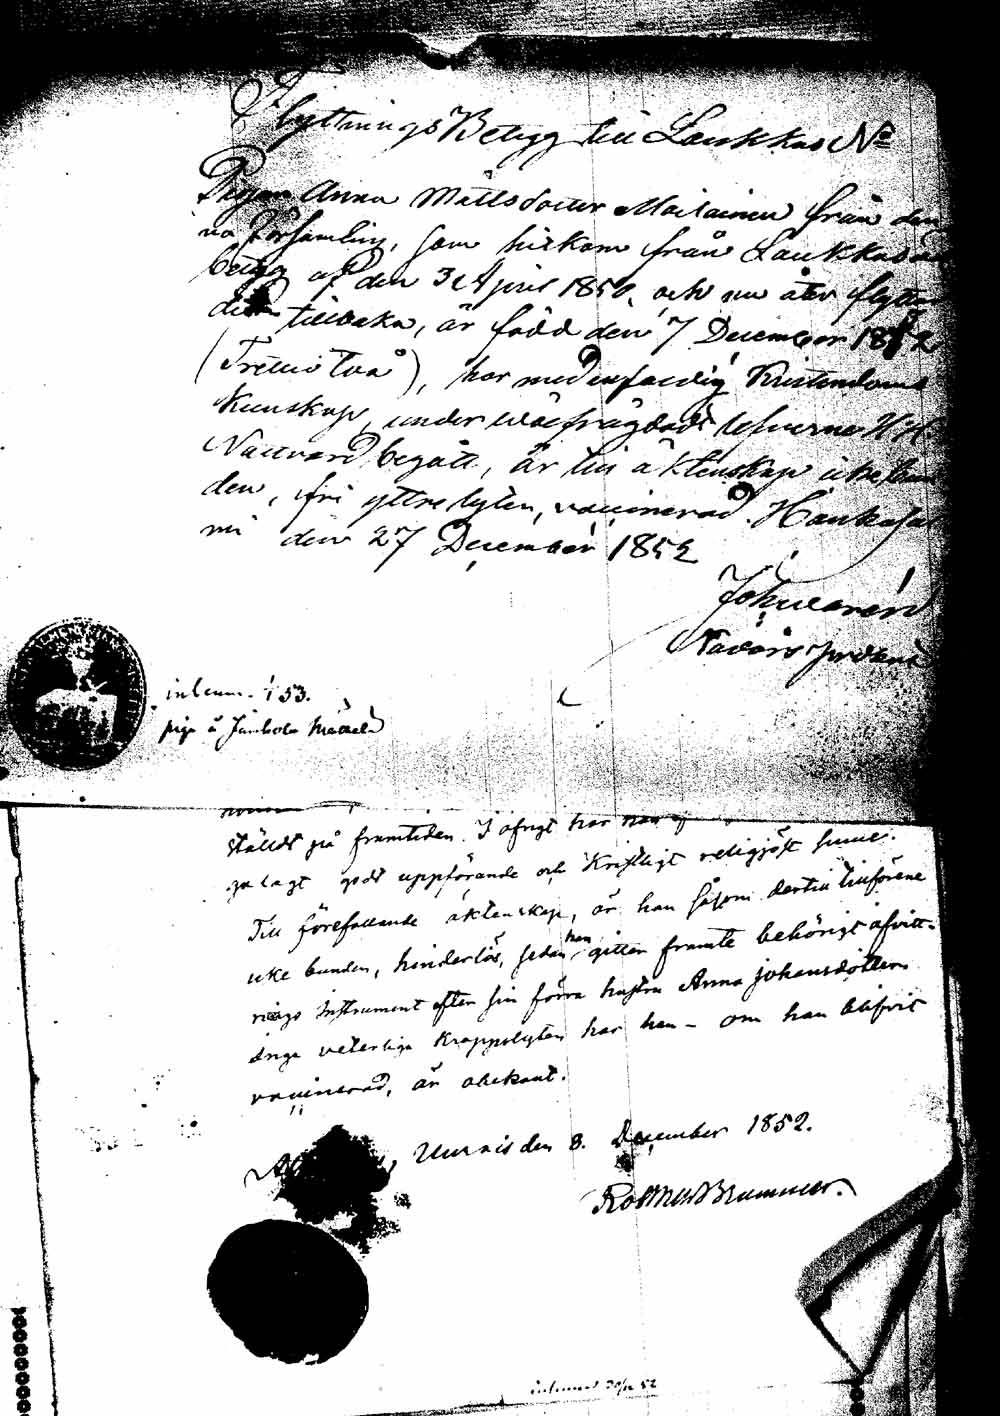 Flyttnings Betyg till Laukkas No
Pigan Anna Mattsdotter Moilainen från den
na Församling, som hitkom från Laukkas å
betyg af den 3 April 1850, och nu åter flyttar
dit tillbaka, är född den 7 December 18
(Trettio två), har medenfaldig Kristendoms
kunskap, under wälfrägdadt lefverne H. H.
Nattvard begått, är till äktenskap icke bun
den, fri yttre lyten, vaccinerad. Hankasal
mi den 27 December 1852
Nådårs predikant
inlemn. 153.
piga å Jämbola
ställdt på framtiden. I öfrigt har han
galagt godt uppförande och Kristligt religiöst sinne.
Till förefallande äktenskap, är han såsom dertill tillförene
icke bunden, hinderlös, sedan han gitter framte behörigt afvitt-
rings Instrument efter sin förra hustru Anna Johansdotter.
Inga veterliga kroppslyten har han – om han blifvit
vaccinerad, är obekant.
den 8. December 1852.
Brummer.
inlemnad 30/12 52